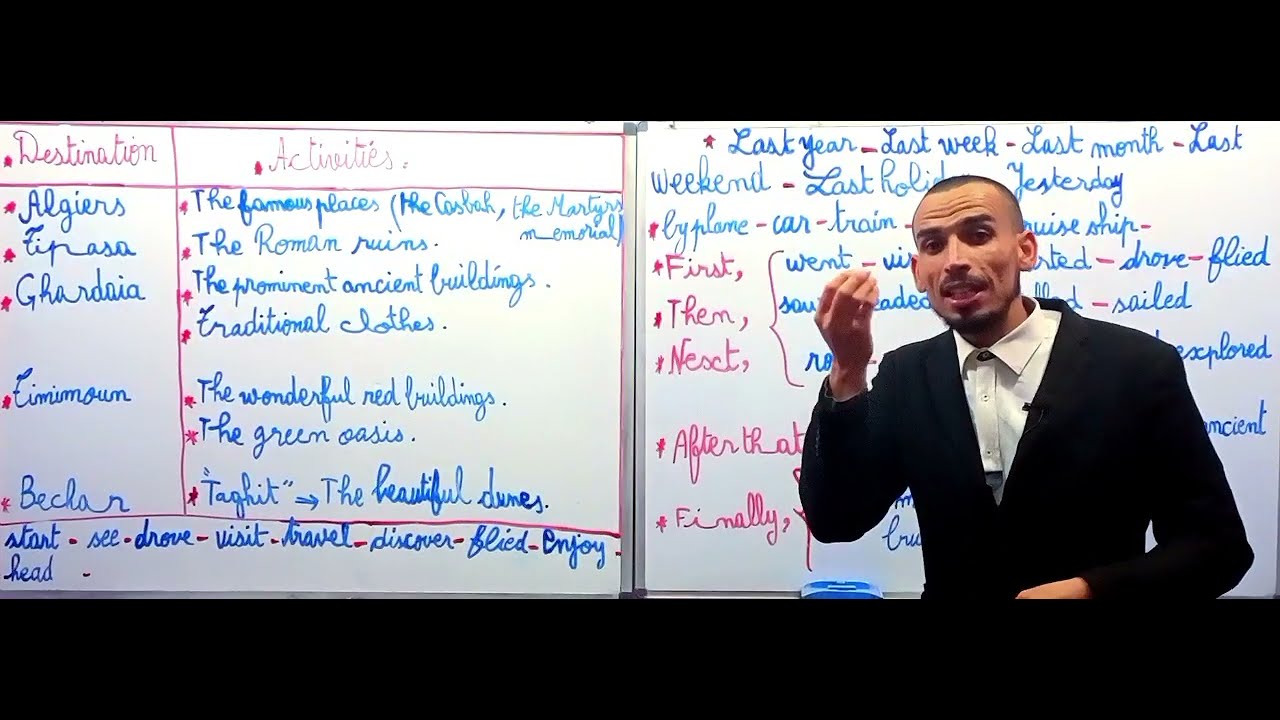 Destination
Activitiés.
* Algiers
* The famous places (the Casbah, the Martyrs
memorial)
* Tipasa
* The Roman ruins.
* Ghardaia
* The prominent ancient buildings.
* Traditional clothes.
* Timimoun
* The wonderful red buildings.
* The green oasis.
* Bechar
* "Taghit" ⇒ The beautiful dunes.
start - see - drove - visit - travel - discover - flied - enjoy -
head -
* Last year - Last week - Last month - Last
weekend - Last Yesterday
* by plane - car - train - ship -
* First, went - drove - flied
* Then, - sailed
* Next, explored
* After that
ancient
* Finally,